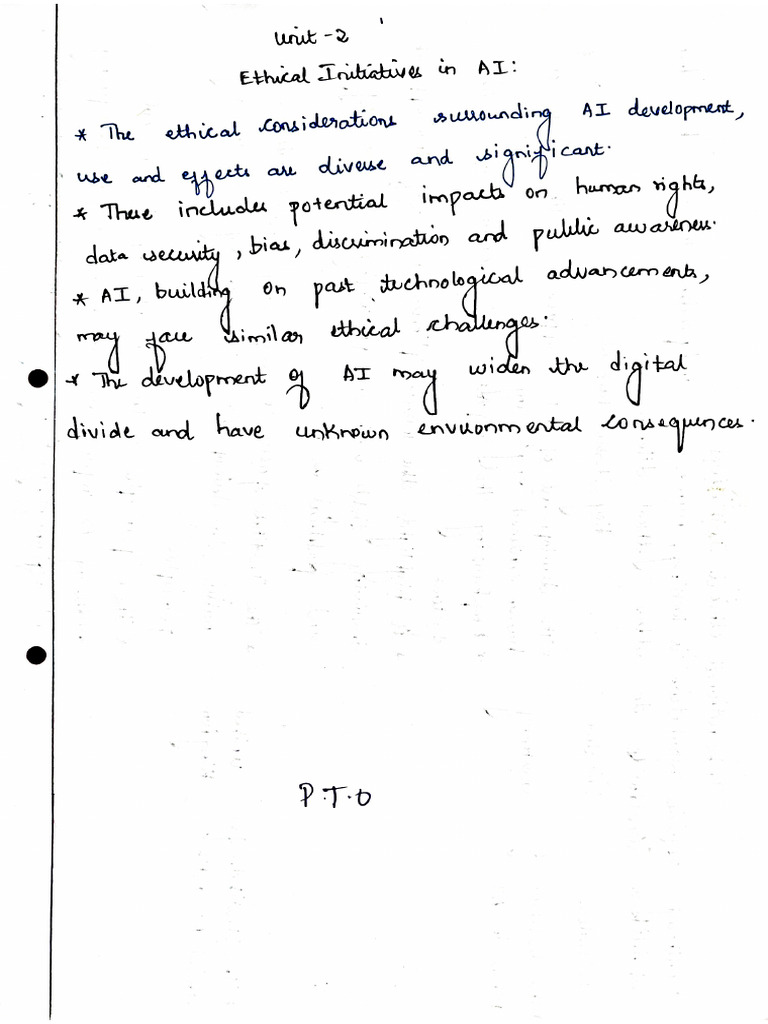 Unit - 2
Ethical Initiatives in AI:
* The ethical considerations surrounding AI development,
use and effects are diverse and significant.
* These includes potential impacts on human rights,
data security, bias, discrimination and public awareness.
* AI, building on past technological advancements,
may face similar ethical challenges.
* The development of AI may widen the digital
divide and have unknown environmental consequences.
P.T.O